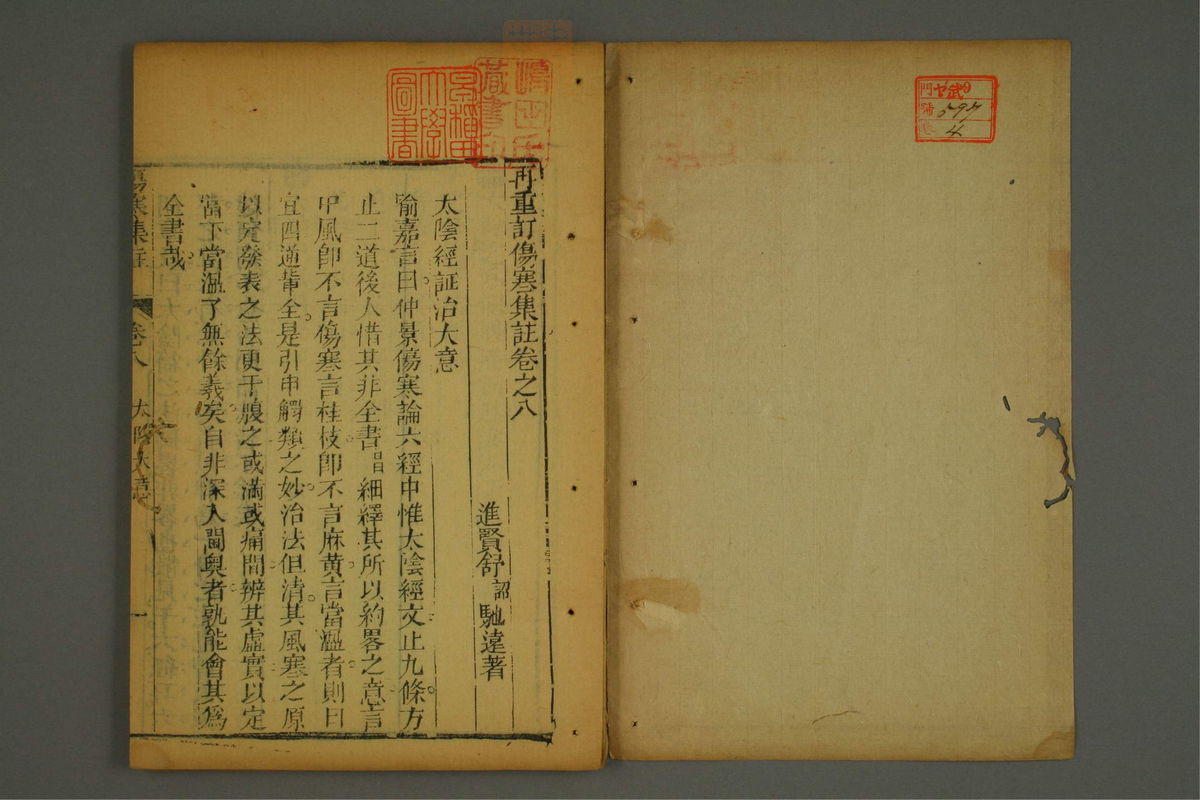 再重訂傷寒集註卷之八
進賢舒詔馳遠著
太陰經証治大意
喻嘉言曰仲景傷寒論六經中惟太陰經文止九條方
止二道後人惜其非全書昌細繹其所以約畧之意言
中風即不言傷寒言桂枝即不言麻黃言當溫者則曰
宜四逆輩全是引申觸類之妙治法但清其風寒之原
以定發表之法更于腹之或滿或痛間辨其虛實以定
當下當溫了無餘義矣自非深入閫奧者孰能會其爲
全書哉
傷寒集註
卷八
太陰大意
一
早稻田大學圖書
藏書
門
號
597
4